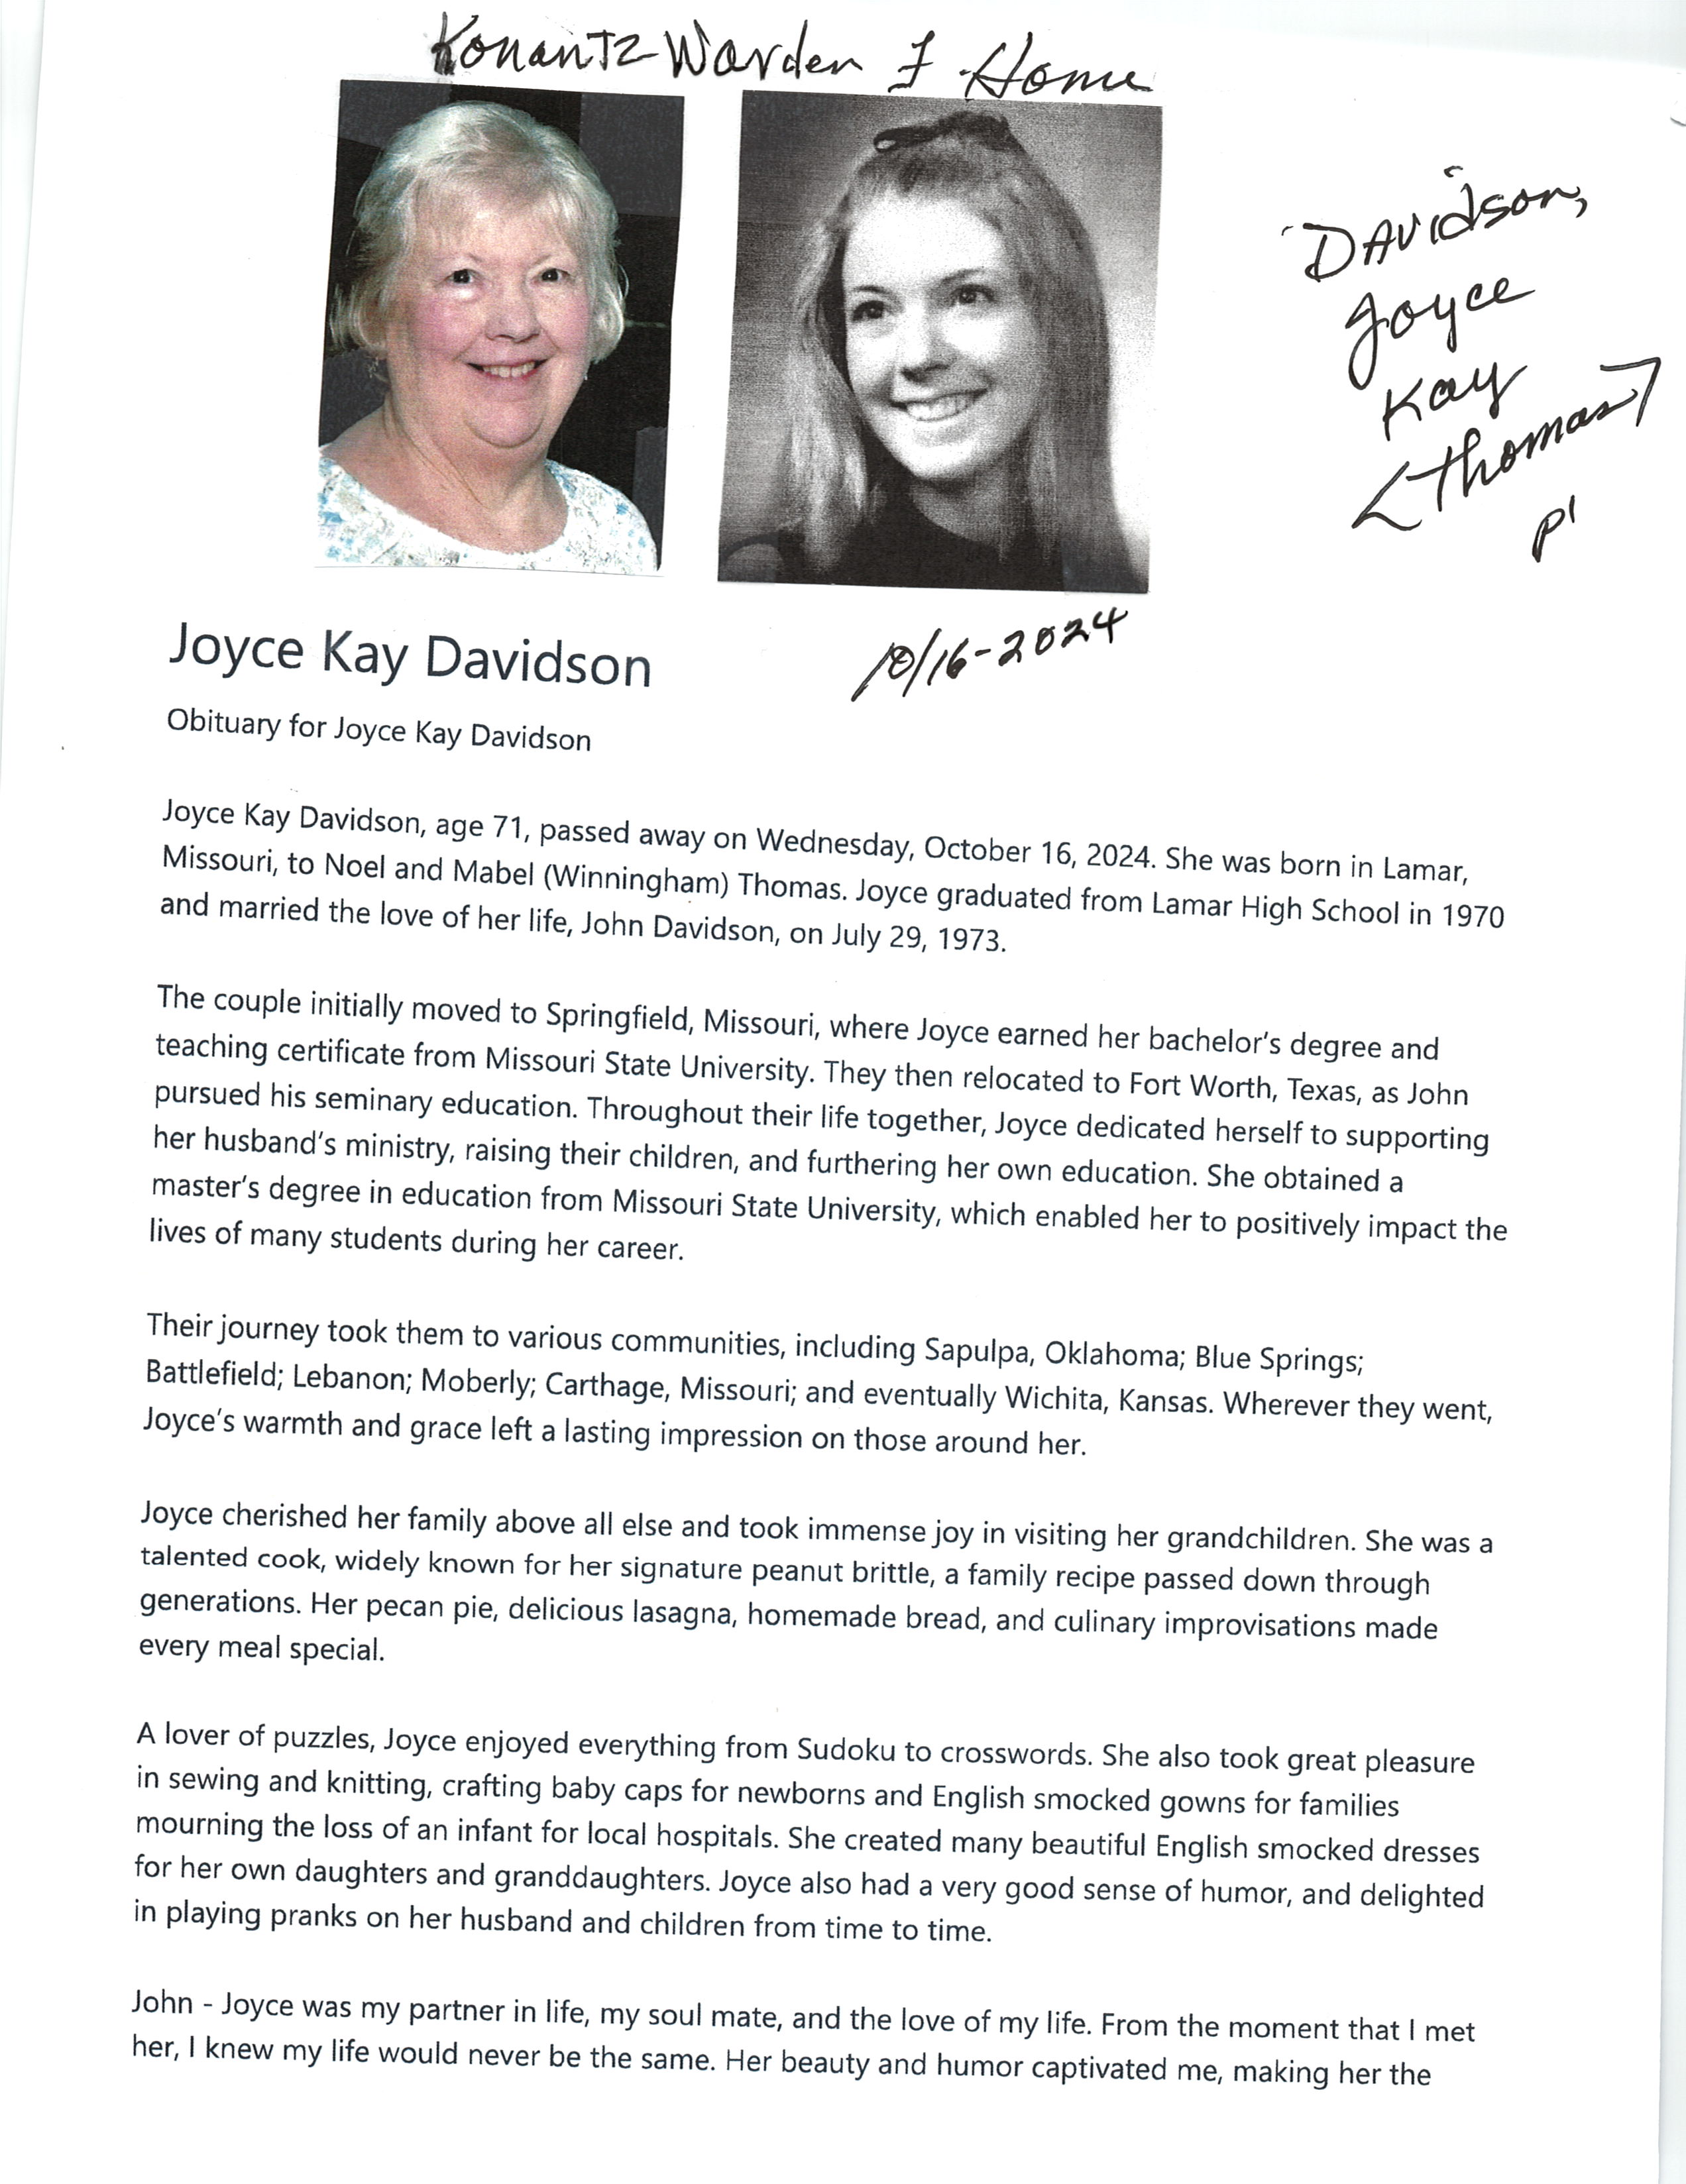 Konantz Warden F Home
Davidson,
Joyce
Kay
<Thomas>
p1
10/16-2024
Joyce Kay Davidson
Obituary for Joyce Kay Davidson
Joyce Kay Davidson, age 71, passed away on Wednesday, October 16, 2024. She was born in Lamar,
Missouri, to Noel and Mabel (Winningham) Thomas. Joyce graduated from Lamar High School in 1970
and married the love of her life, John Davidson, on July 29, 1973.
The couple initially moved to Springfield, Missouri, where Joyce earned her bachelor's degree and
teaching certificate from Missouri State University. They then relocated to Fort Worth, Texas, as John
pursued his seminary education. Throughout their life together, Joyce dedicated herself to supporting
her husband's ministry, raising their children, and furthering her own education. She obtained a
master's degree in education from Missouri State University, which enabled her to positively impact the
lives of many students during her career.
Their journey took them to various communities, including Sapulpa, Oklahoma; Blue Springs;
Battlefield; Lebanon; Moberly; Carthage, Missouri; and eventually Wichita, Kansas. Wherever they went,
Joyce's warmth and grace left a lasting impression on those around her.
Joyce cherished her family above all else and took immense joy in visiting her grandchildren. She was a
talented cook, widely known for her signature peanut brittle, a family recipe passed down through
generations. Her pecan pie, delicious lasagna, homemade bread, and culinary improvisations made
every meal special.
A lover of puzzles, Joyce enjoyed everything from Sudoku to crosswords. She also took great pleasure
in sewing and knitting, crafting baby caps for newborns and English smocked gowns for families
mourning the loss of an infant for local hospitals. She created many beautiful English smocked dresses
for her own daughters and granddaughters. Joyce also had a very good sense of humor, and delighted
in playing pranks on her husband and children from time to time.
John - Joyce was my partner in life, my soul mate, and the love of my life. From the moment that I met
her, I knew my life would never be the same. Her beauty and humor captivated me, making her the